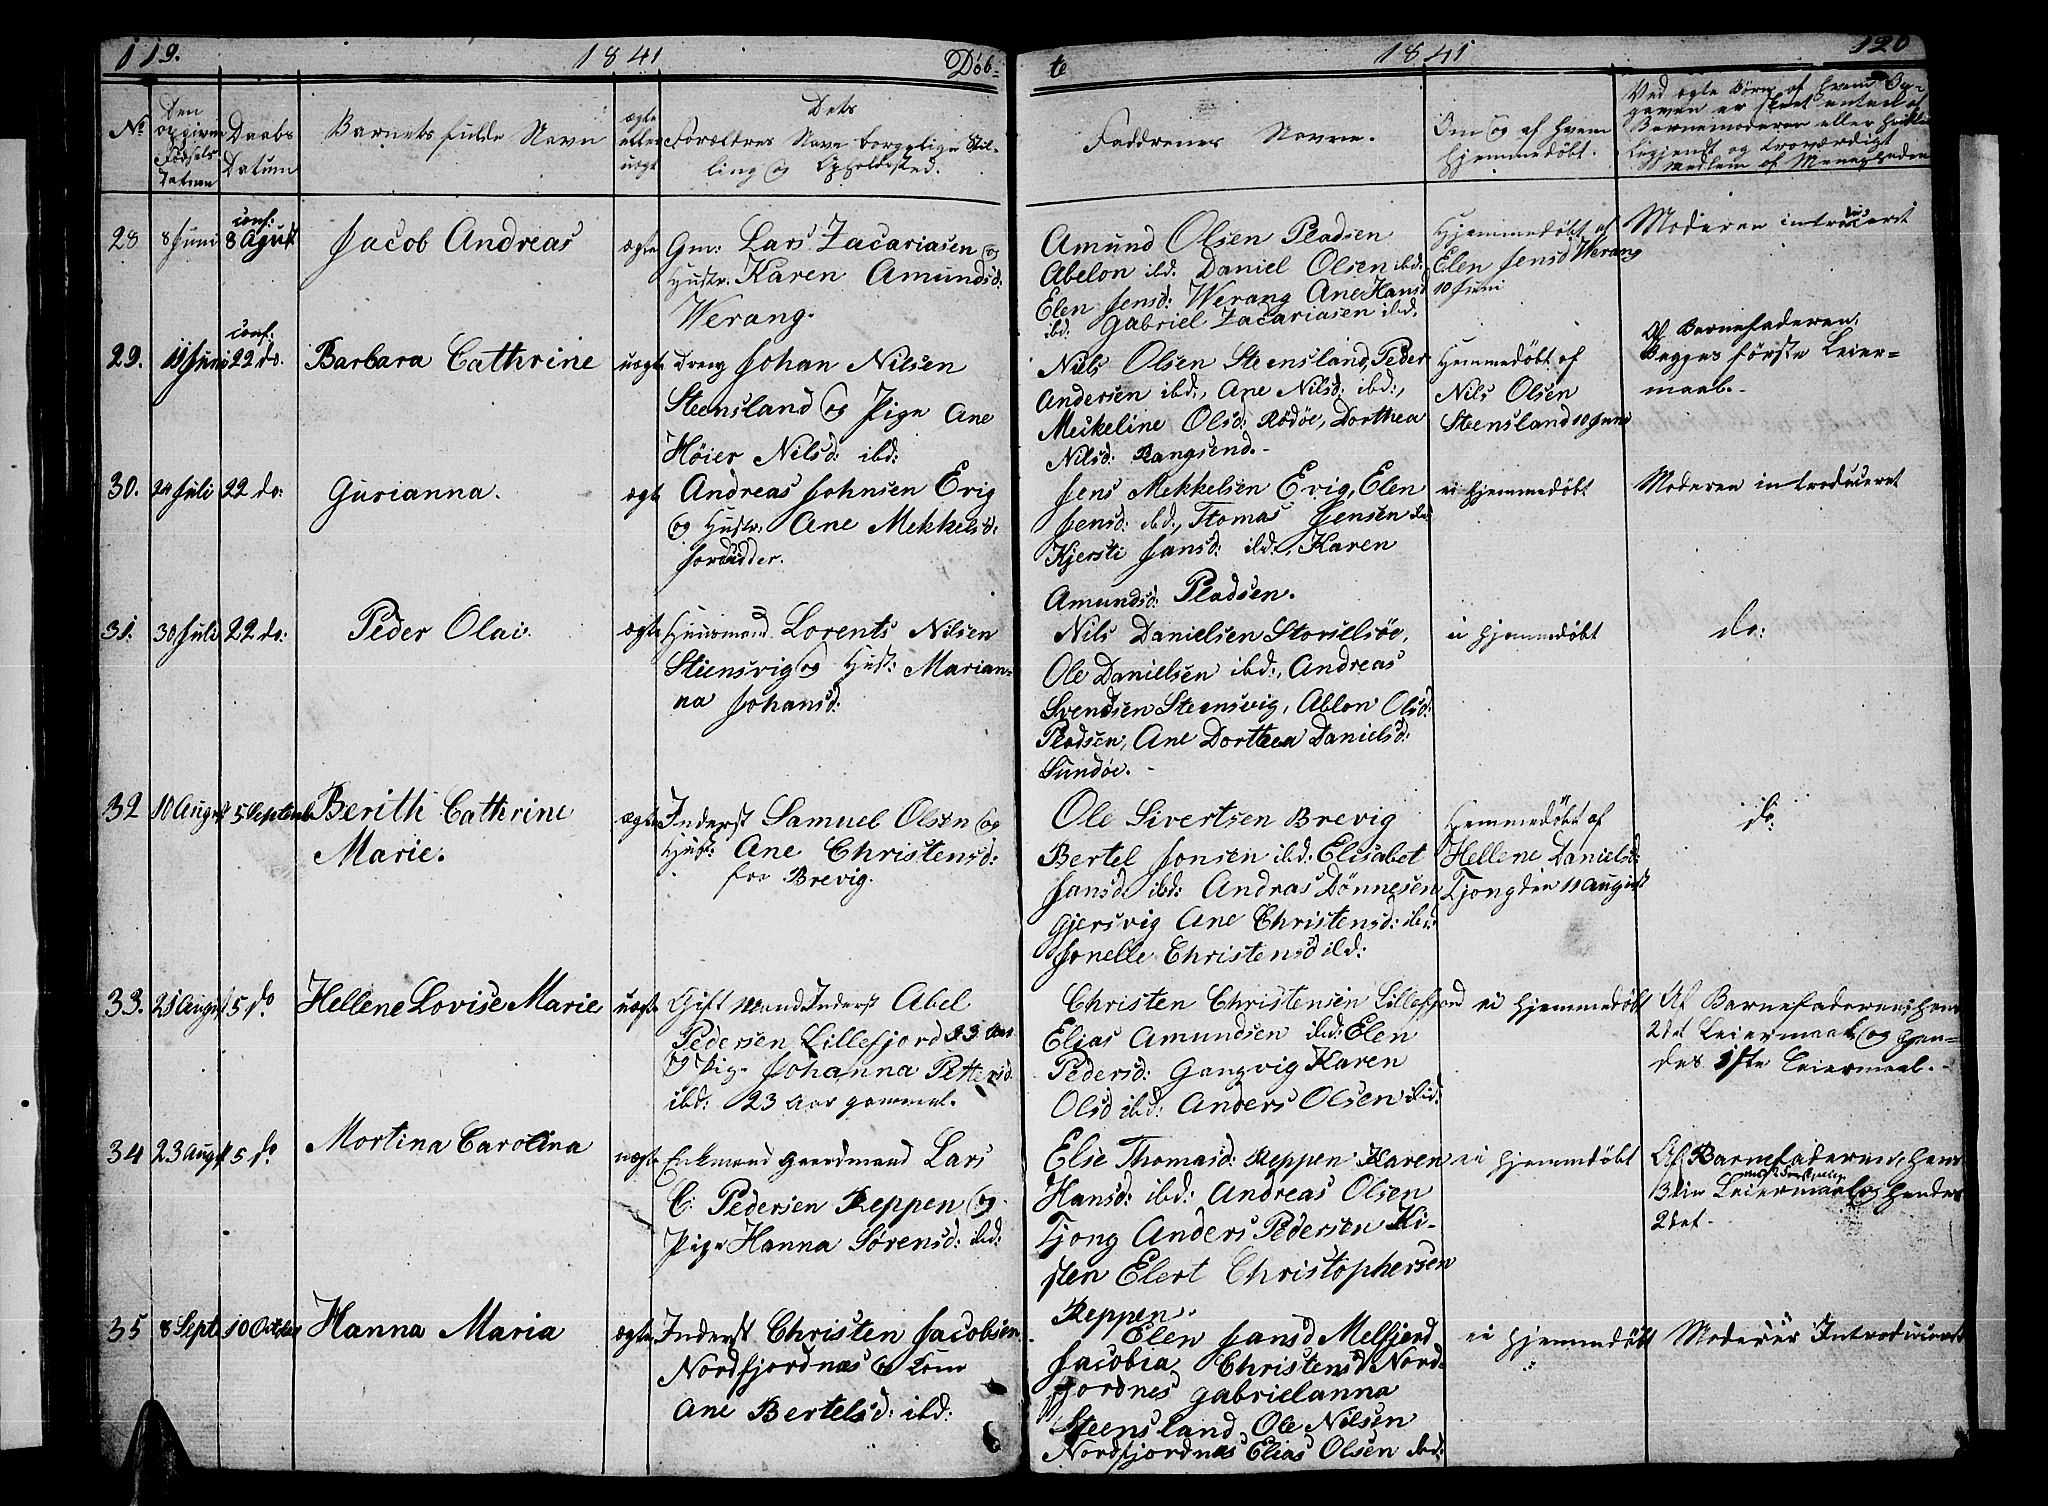 119. 1841 Döb-
te 1841 120
No Den opgivne Födsels Datum
Daabs Datum
Barnets fulde Navn
ægte eller uægte
Dets
Forældres Navn borgelige Stil-
ling og Opholdssted.
Faddrenes Navne.
Om og af hvem
hjemmedöbt.
Ved uægte Börn af hvem Op-
given er skeet enten af
Barnemoderen eller hvilket
Medlem af Menigheden
28 8 Juni conf: 8 Agust Jacob Andreas ægte Gm: Lars Zacariasen og
Hustr. Karen Amundsd:
Werang.
Amund Olsen Pladsen
Abelon ibd: Daniel Olsen ibd:
Elen Jensd: Werang Ane Hansd
ibd: Gabriel Zacariasen ibd.
Hjemmedöbt af
Elen Jensd Werang
10 Juni
Moderen introduceret
29. 11 Juni conf: 22 do. Barbara Cathrine uægte Dreng Johan Nilsen
Steensland og Pige Ane
Höier Nilsd: ibd:
Niels Olsen Steensland, Peder
Andersen ibd:, Ane Nilsd: ibd:,
Meckeline Olsd: Rödöe, Dorthea
Nilsd: Rangsend.-
Hjemmedöbt af
Nils Olsen
Steensland 10 Juni
Af Barnefaderen.
Begges förste Leier=
maal.-
30. 24 Juli 22 do: Gurianna. ægte Andreas Johnsen Evig
og Hustr: Ane Mekkelsd:
Jens Mekkelsen Evig, Elen
Jensd: ibd:, Tomas Jensen ibd
Kjersti Jansd: ibd:, Karen
Amundsd: Pladsen.
ei hjemmedöbt
Moderen introduceret
31. 30 Juli 22 do: Peder Olai. ægte Huusmand Lorents Nilsen
Stiensvig og Hust: Marian=
na Johansd:
Nils Danielsen Storselsöe,
Ole Danielsen ibd:, Andreas
Svendsen Steensvig, Ablon Olsd:
Pladsen, Ane Dorthea Danielsd:
Sundöe.-
ei hjemmedöbt
do:
32 10 August 5 Septemb Berith Cathrine
Marie.
ægte Inderst Samuel Olsen og
Hust: Ane Christensd:
fra Brevig.
Ole Sivertsen Brevig
Bertel Jonsen ibd: Elisabet
Jansd ibd: Andras Dönnesen
Gjersvig Ane Christensd: ibd:
Jonelle Christensd ibd:
Hjemmedöbt af
Hellene Danielsd:
Tjong den 11 August
do:
33. 21 August 5 do Hellene Lovise Marie uægte Gift Mand Inderst Abel
Pedersen Lillefjord 23 Aar
og Pige Johanna Pettersd
ibd: 23 Aar gammel.
Christen Christensen Lillefjord
Elias Amundsen ibd: Elen
Pedersd: Gangvig Karen
Olsd ibd: Anders Olsen ibid:
ei hjemmedöbt
Af Barnefaderen, hans
2det Leiermaal og hen=
des 1ste Leiermaal.-
34 23 Augst 5 do Mortina Carolina uægte Enkmand Gaardmand Lars
C: Pedersen Reppen og
Pige Hanna Sörensd: ibd:
Else Thomasd: Reppen Karen
Hansd: ibd: Andreas Olsen
Tjong Anders Pedersen Ki-
sten Elert Christophersen
Reppen.
ei hjemmdöbt
Af Barnefaderen, hans
3die Leiermaal og hendes
2det.-
35 8 Sept. 10 October Hanna Maria ægte Inderst Christen Jacobsen
Nordfjordnæs og Kone
Ane Bertelsd: ibd:
Elen Jansd Melfjord
Jacobia Christensd Nord-
fjordnes Gabrielanna
Steensland, Ole Nilsen
Nordfjordnæs Elias Olsen ibd:
ei hjemmedöbt
Moderen Introduceret